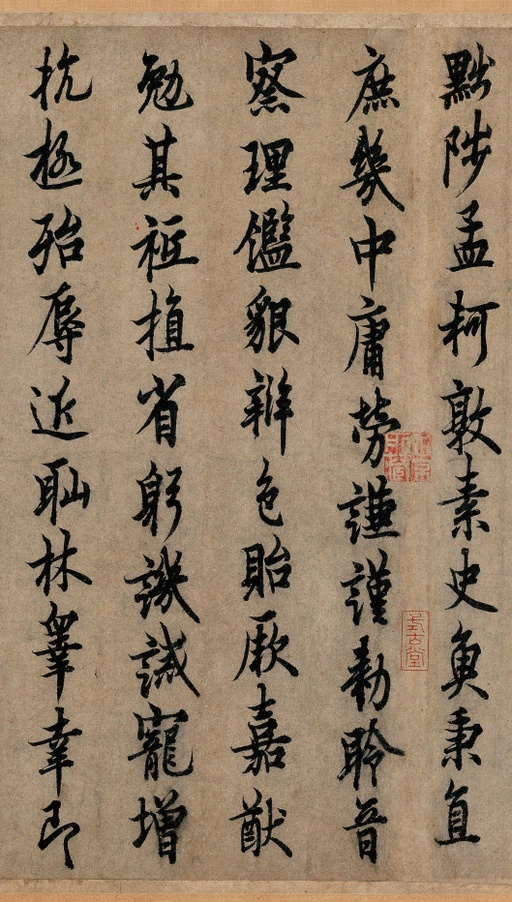 黜陟孟軻敦素史魚秉直
庶幾中庸勞謙謹勅聆音
察理鑑貌辯色貽厥嘉猷
勉其祗植省躬譏誡寵增
抗極殆辱近恥林皋幸即